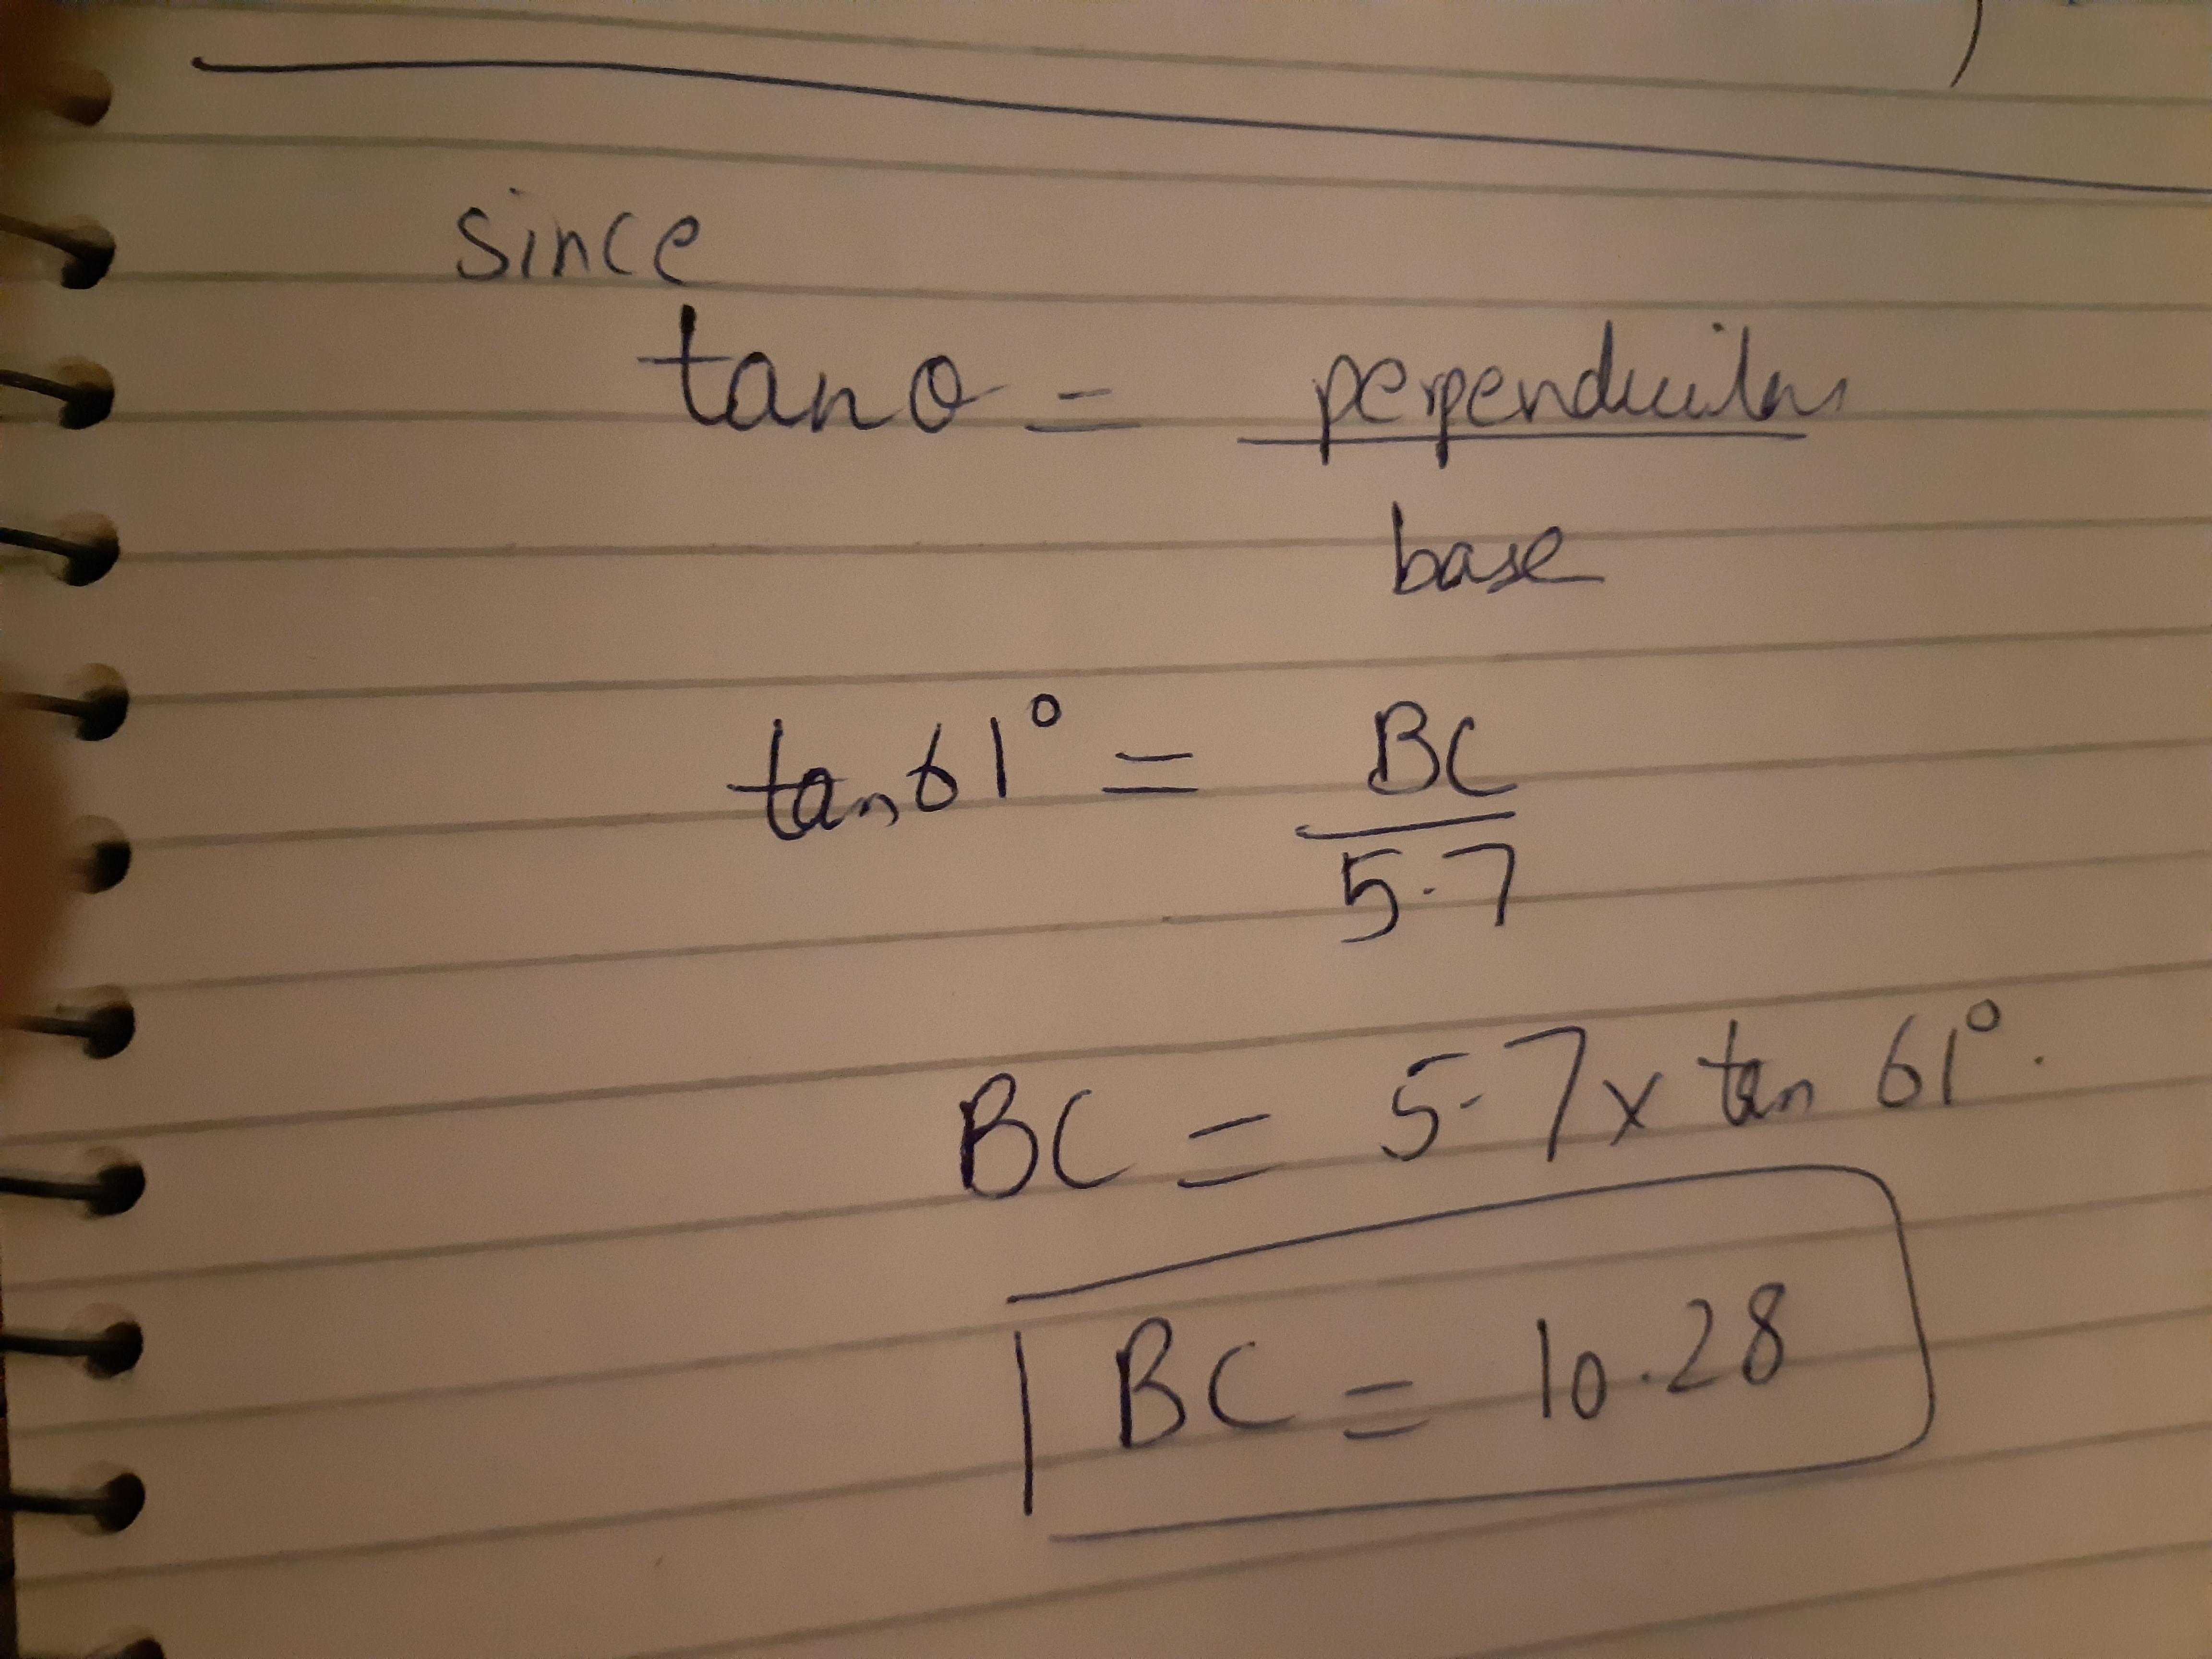 since
tan θ = perpendicular
base
tan 61° = BC
5.7
BC = 5.7 x tan 61°.
BC = 10.28